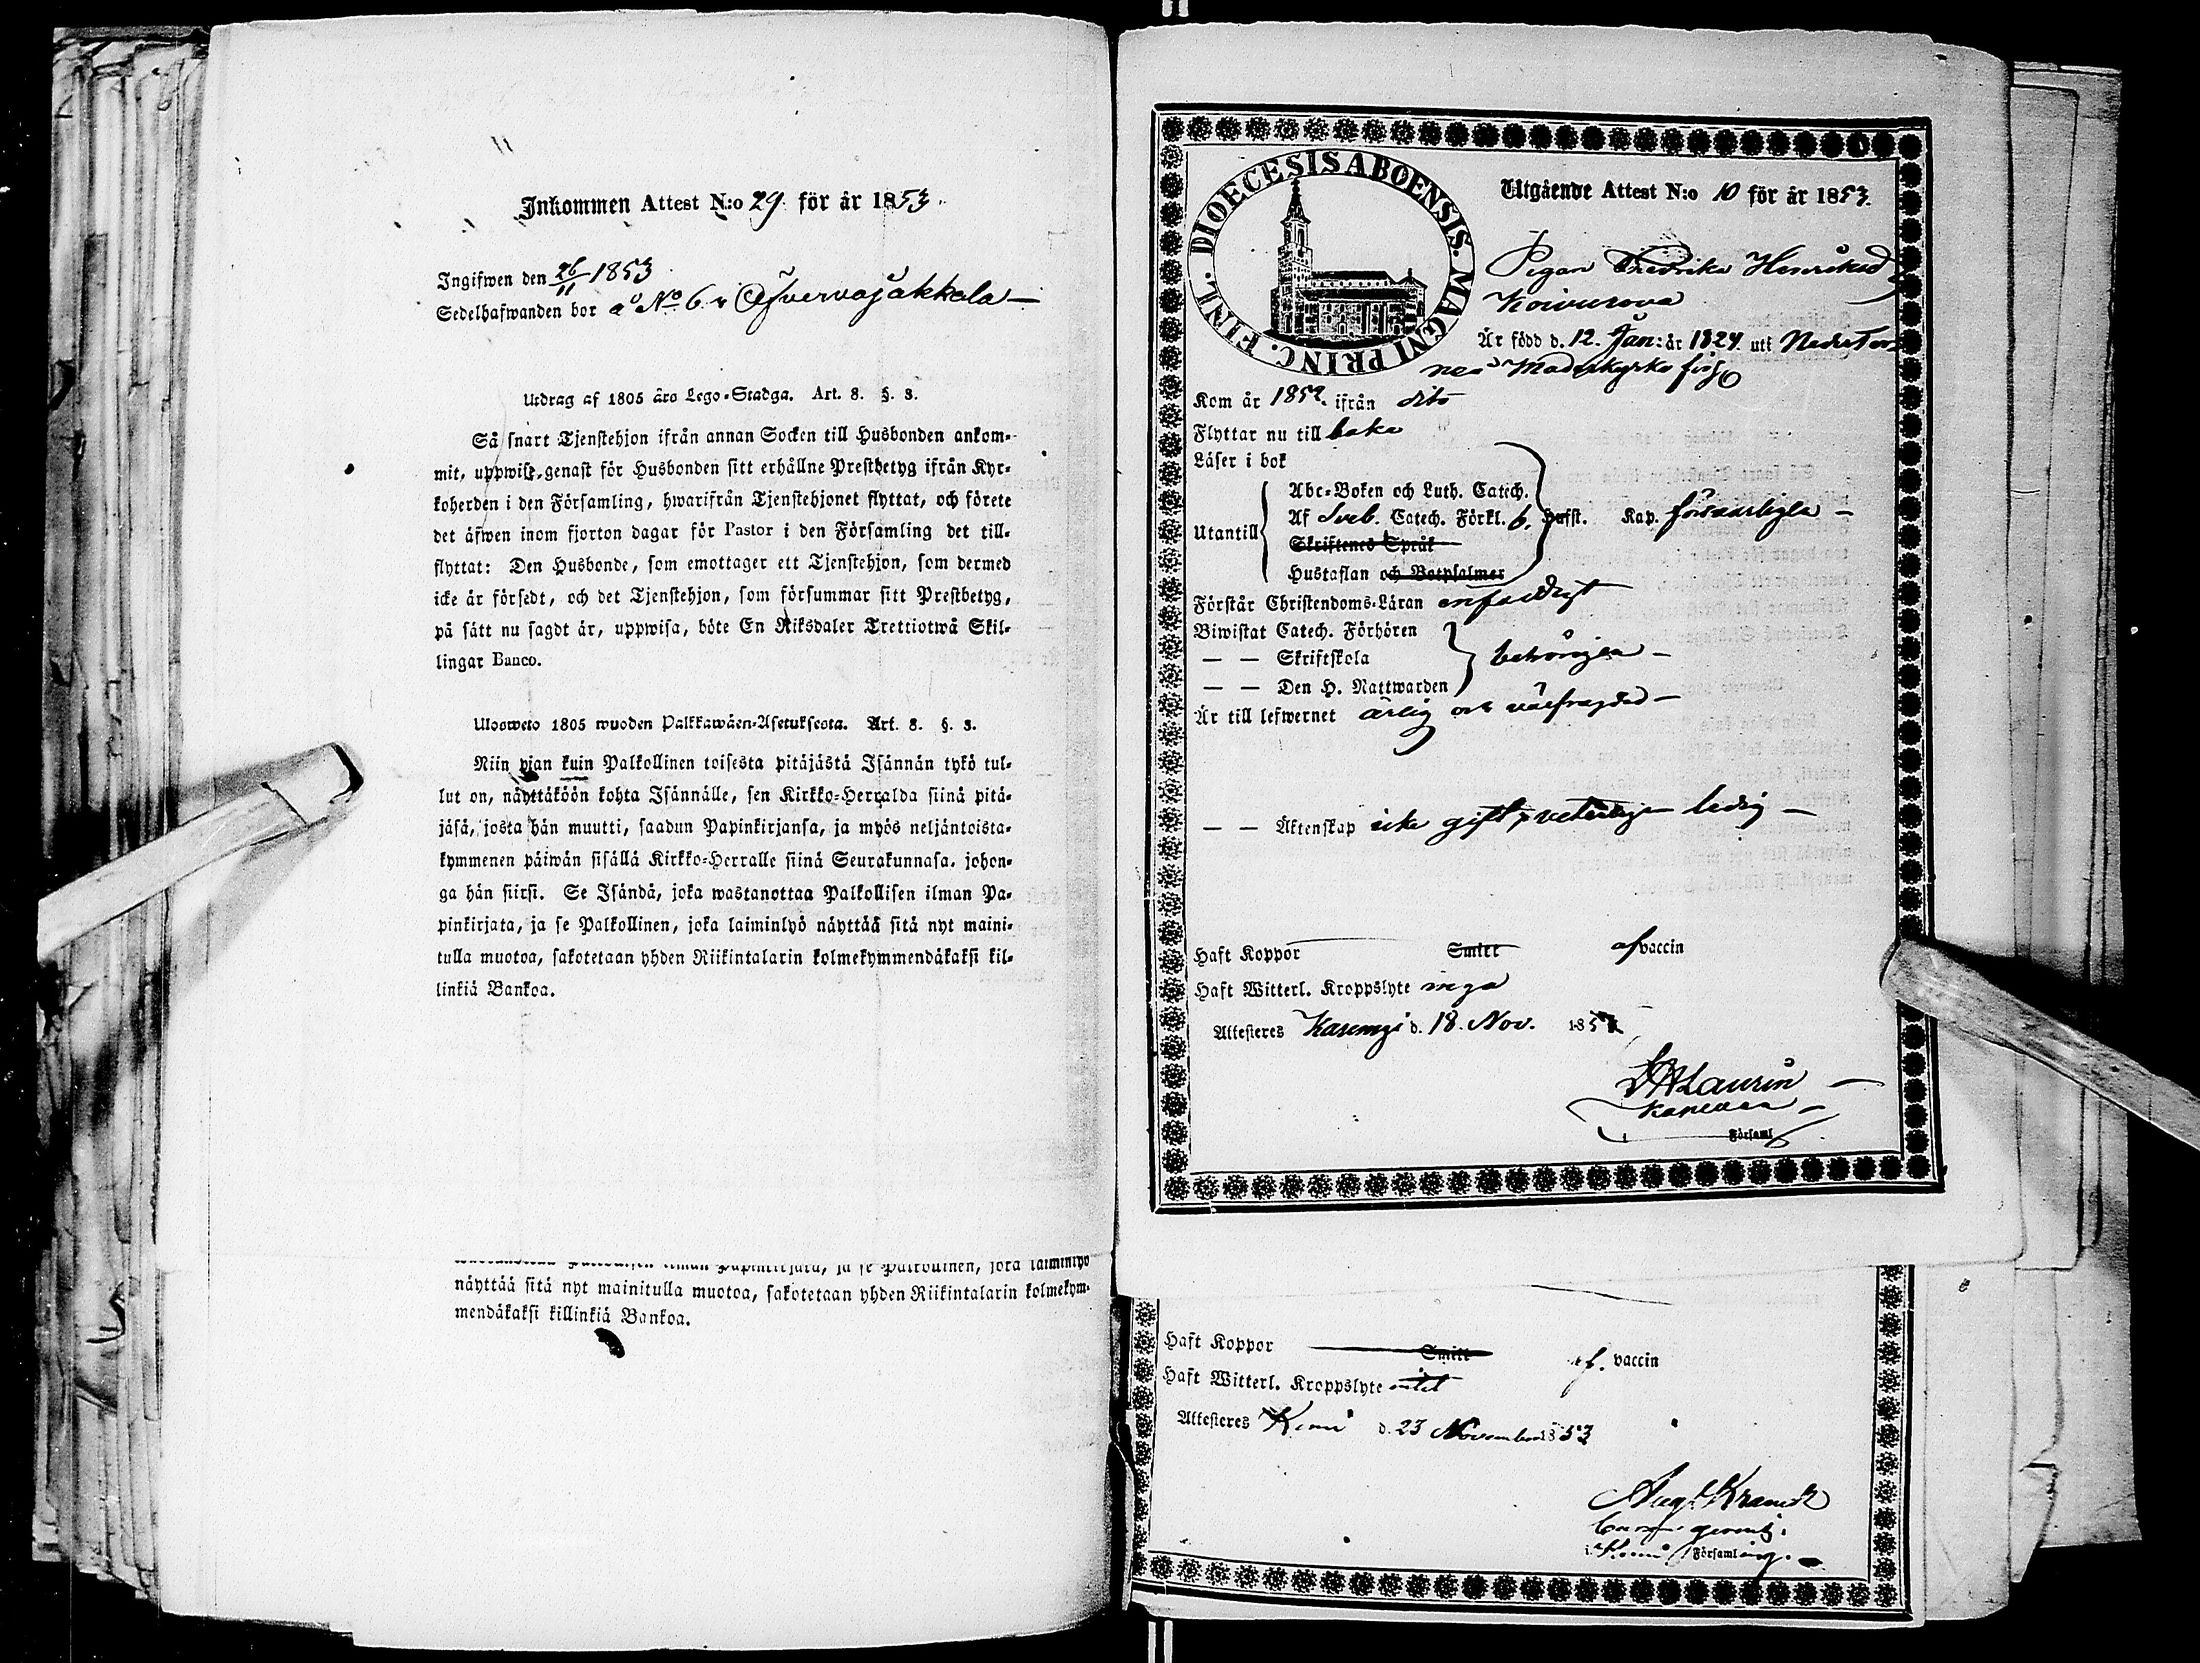 Inkommen Attest N:o 29 för år 1853.
Ingifwen den 26/11 1853
Sedelhafwanden bor å No 6 i Öfvervojakkala
Utdrag af 1805 års Lego-Stadga. Art. 8. §. 3.
Så snart Tjenstehjon ifrån annan Socken till Husbonden ankom-
mit, uppwise genast för Husbonden sitt erhållne Prestbetyg ifrån Kyr-
koherden i den Församling, hwarifrån Tjenstehjonet flyttat, och förete
det äfwen inom fjorton dagar för Pastor i den Församling det till-
flyttat: Den Husbonde, som emottager ett Tjenstehjon, som dermed
icke är försedt, och det Tjenstehjon, som försummar sitt Prestbetyg,
på sätt nu sagdt är, uppwisa, böte En Riksdaler Trettiotwå Skil-
lingar Banco.
Ulosweto 1805 wuoden Palkkawäen-Asetuksesta. Art. 8. §. 3.
Niin pian kuin Palkollinen toisesta pitäjästä Isännän tykö tul-
lut on, näyttäköön kohta Isännälle, sen Kirkko-Herralda siinä pitä-
jäsä, josta hän muutti, saadun Papinkirjansa, ja myös neljäntoista-
kymmenen päiwän sisällä Kirkko-Herralle siinä Seurakunnasa, johon-
ga hän siirsi. Se Isändä, joka wastanottaa Palkollisen ilman Pa-
pinkirjata, ja se Palkollinen, joka laiminlyö näyttää sitä nyt maini-
tulla muotoa, sakotetaan yhden Riikintalarin kolmekymmendäkaksi kil-
linkiä Bankoa.
Papinkirjata, ja se Palkollinen, joka laiminlyö
näyttää sitä nyt mainitulla muotoa, sakotetaan yhden Riikintalarin kolmekym-
mendäkaksi killinkiä Bankoa.
DIOECESIS ABOENSIS. MAGNI PRINC. FINL.
Utgående Attest N:o 10 för år 1853.
Pigan Fredrika Henriksd
Koivurova
Är född d. 12. Jan: år 1824 uti Neder Tor
neå Moderkyrko förs
Kom år 1852 ifrån dito
Flyttar nu till baka
Läser i bok
Abc-Boken och Luth. Catech.
Utantill Af Sveb. Catech. Förkl. 6. Hufst. Kap. försvarligla
Skriftenes Språk
Hustaflan och Botpsalmer
Förstår Christendoms-Läran enfaldigt
Biwistat Catech. Förhören
— — Skriftskola behörigen
— — Den H. Nattwarden
Är till lefwernet ärlig och välfrägdad
— — Äktenskap icke gift, veterligen ledig
Haft Koppor Smitt af vaccin
Haft Witterl. Kroppslyte inga
Attesteres Karungi d. 18. Nov. 185
Laurin
Församl
Haft Koppor Smitt af. vaccin
Haft Witterl. Kroppslyte intet
Attesteres Kemi d. 23 November 1853
i Kemi Församling.